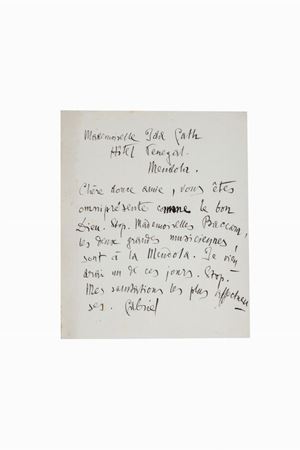 Mademoiselle Ida Cath
Hôtel Penegal.
Mendola.
Chère douce amie, vous êtes
omniprésente comme le bon
Dieu. Stop. Mademoiselles Baccara,
les deux grandes musiciennes,
sont à la Mendola. Je vien
drai un de ces jours. Stop.
Mes salutations les plus affectueu
ses. Gabriel